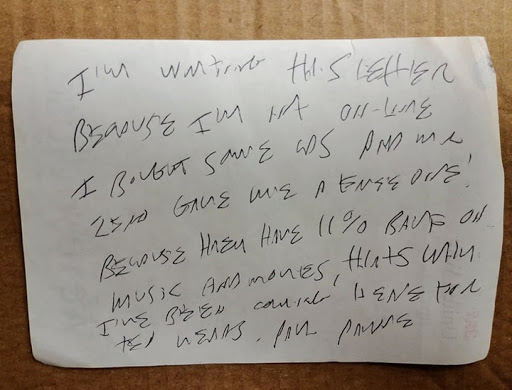 I'm writing this letter
Because I'm not on-line
I Bought some CDs And Mr
Gave me A Free one!
Because Have 11% on
music And movies, thats why
I've been coming here for
ten years. Paul